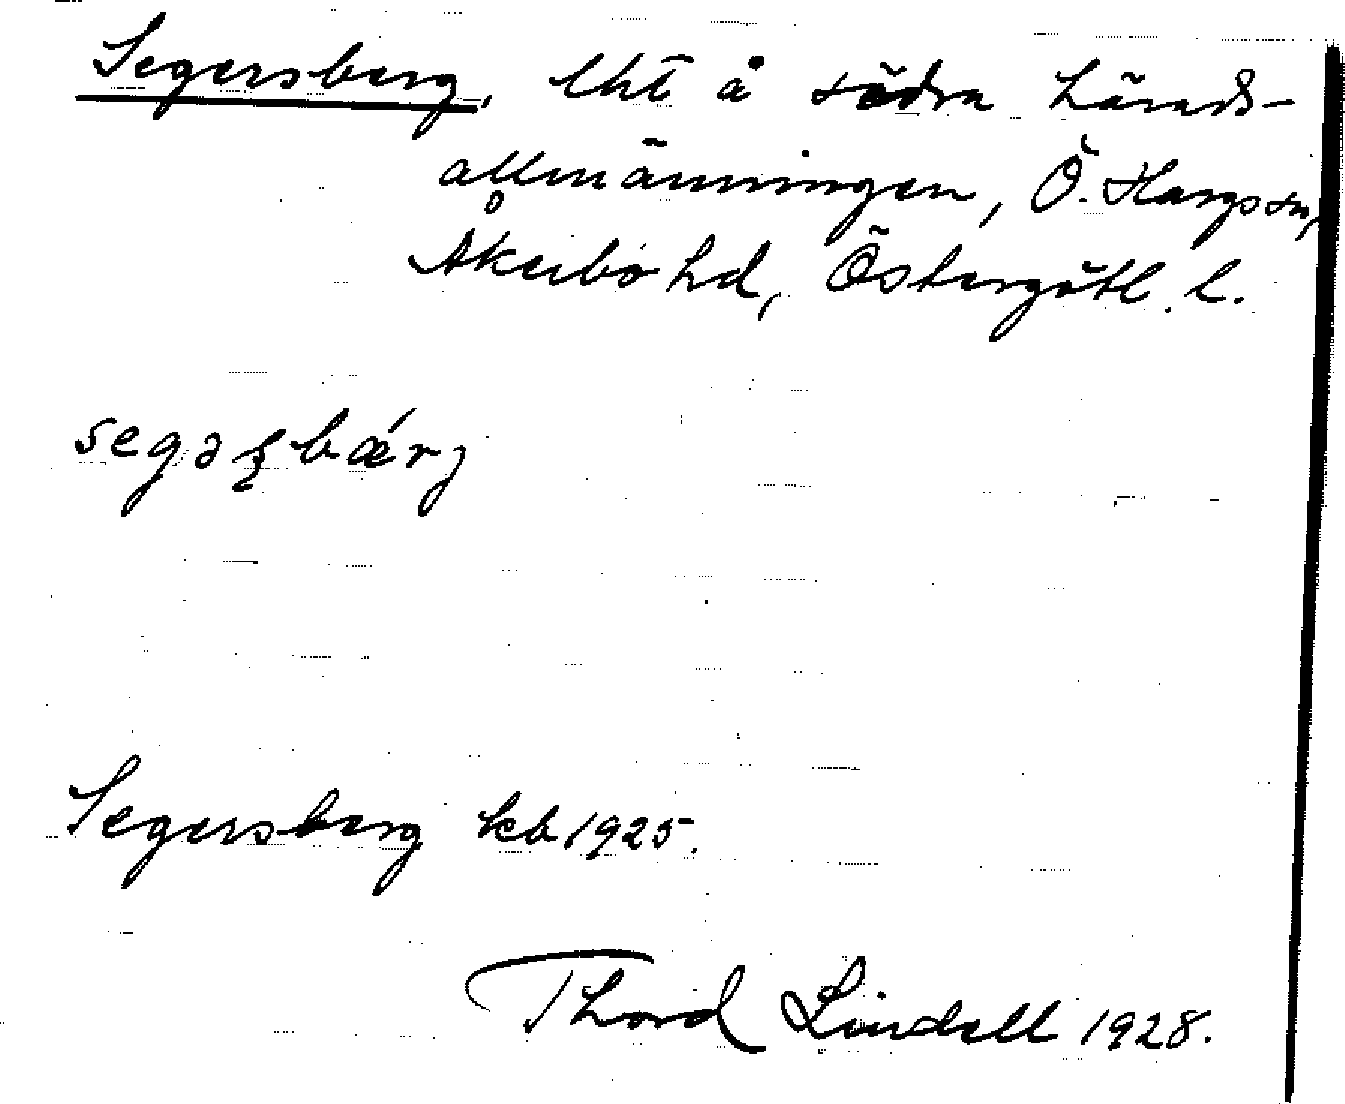 Segersberg, lht å södra härads-
allmänningen, Ö. Hargs sn,
Åkerbo hd, Östergötl. l.
segəʂbærj
Segersberg kb 1925.
Thord Lindell 1928.